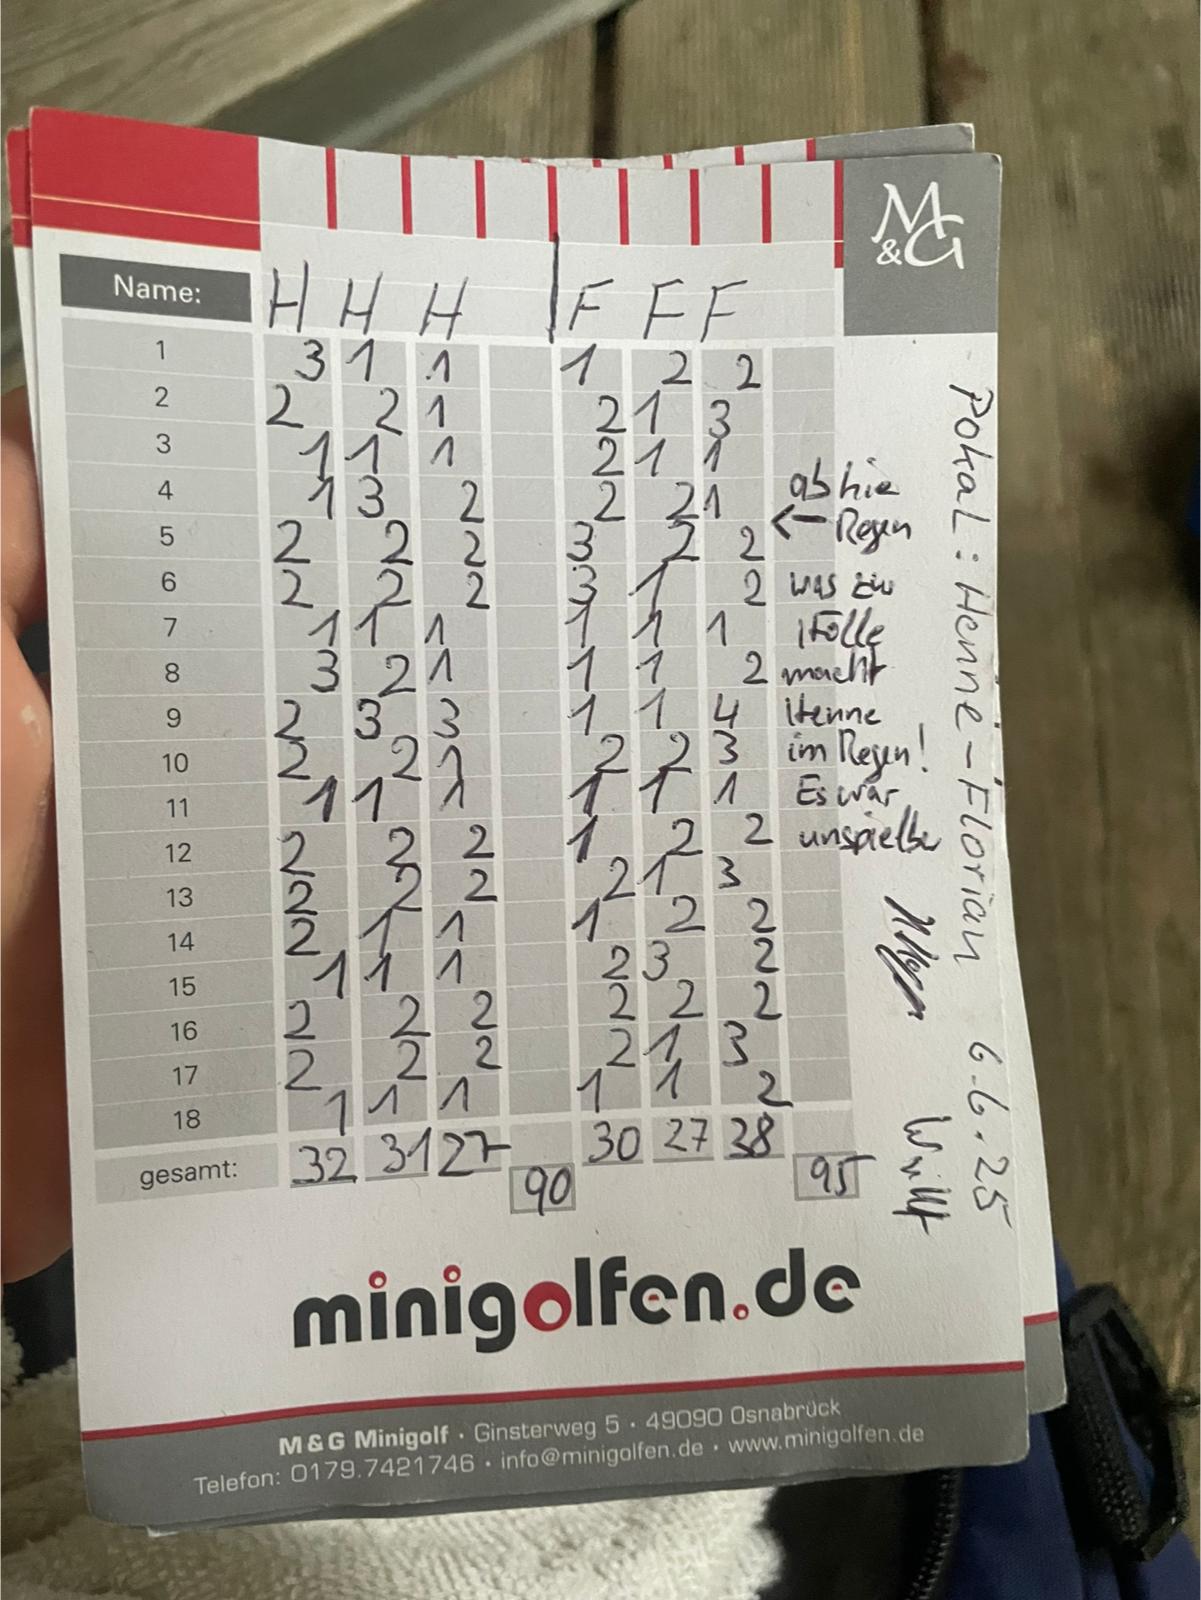 M&G
Name: H H H F F F
1 3 1 1 1 2 2
2 2 2 1 2 1 3
3 1 1 1 2 1 1
4 1 3 2 2 2 1
5 2 2 2 3 2 2
6 2 2 2 3 1 2
7 1 1 1 1 1 1
8 3 2 1 1 1 2
9 2 3 3 1 1 4
10 2 2 1 2 2 3
11 1 1 1 1 1 1
12 2 2 2 1 2 2
13 2 2 2 2 1 3
14 2 1 1 1 2 2
15 1 1 1 2 3 2
16 2 2 2 2 2 2
17 2 2 2 2 1 3
18 1 1 1 1 1 2
gesamt: 32 31 27 90 30 27 38 95
ab hie
← Regen
was zu
macht
Henne
im Regen!
Es war
unspielba
Pokal: Henne-Florian 6.6.25
minigolfen.de
M & G Minigolf · Ginsterweg 5 · 49090 Osnabrück
Telefon: 0179.7421746 · info@minigolfen.de · www.minigolfen.de